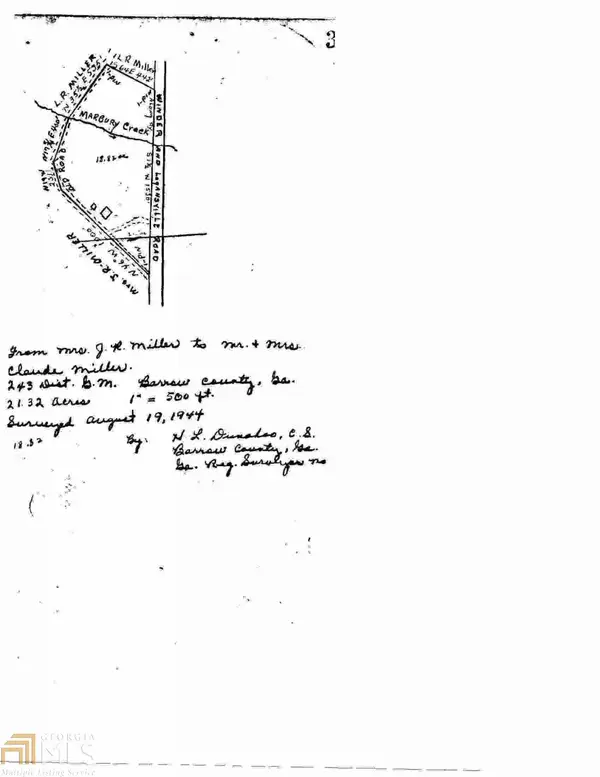 3
L.R. Miller
S 64 E 442
L.R. MILLER
MARBURY Creek
WINDER AND LOGANSVILLE ROAD
18.82 ac
OLD ROAD
N 46 W
1700
Mrs. J.R. MILLER
From Mrs. J. R. Miller to Mr. + Mrs.
Claude Miller.
243 Dist. G.M. Barrow County, Ga.
21.32 Acres 1" = 500 ft.
Surveyed August 19, 1944
18.82 By: H L. Dunahoo, C.S.
Barrow County, Ga.
Ga. Reg. Surveyor no
GEORGIA
MLS
Multiple Listing Service